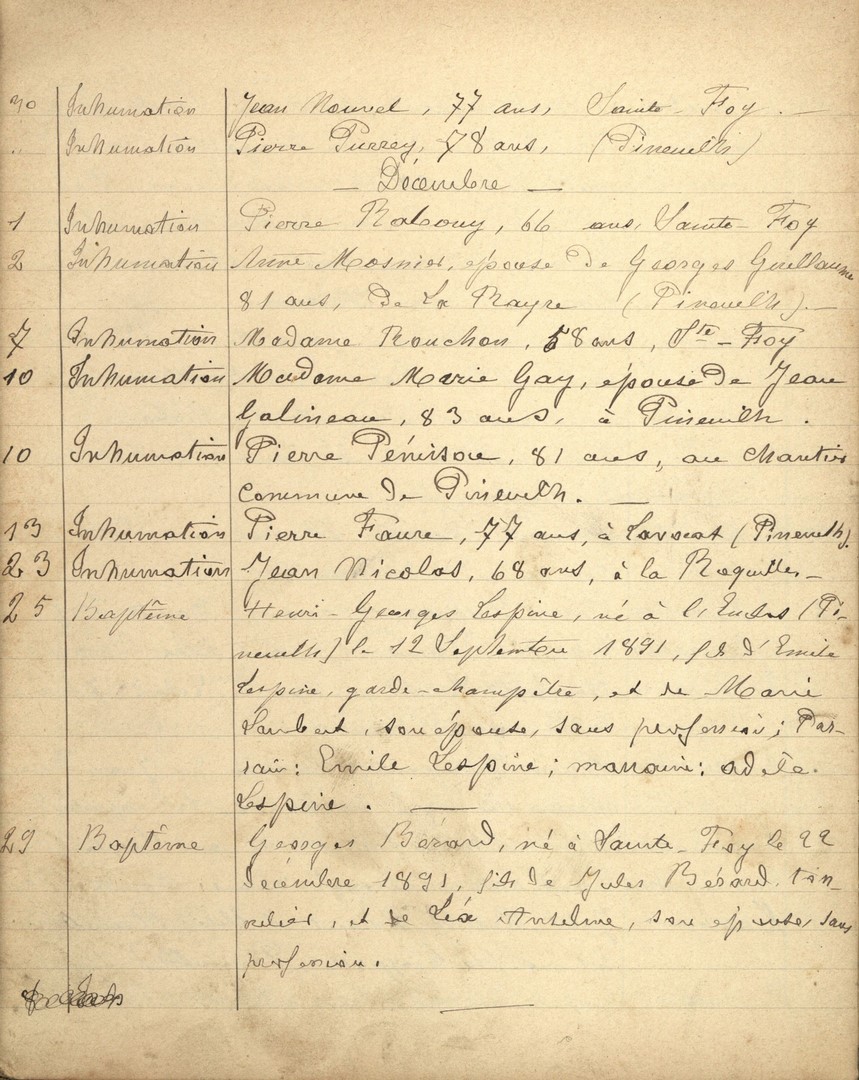 30 Inhumation Jean Nouvel, 77 ans, Sainte-Foy.—
" Inhumation Pierre Purrey, 78 ans, (Pineuilh)
— Décembre —
1 Inhumation Pierre Rabouy, 66 ans, Sainte-Foy
2 Inhumation Anne Mosnier, épouse de Georges Guillaume
81 ans, de La Rayre (Pineuilh).—
7 Inhumation Madame Rouchon, 58 ans, Ste-Foy
10 Inhumation Madame Marie Gay, épouse de Jean
Galineau, 83 ans, à Pineuilh.
10 Inhumation Pierre Pénisson, 81 ans, au Chantier
Commune de Pineuilh. —
13 Inhumation Pierre Faure, 77 ans, à Lavocat (Pineuilh).
23 Inhumation Jean Nicolas, 68 ans, à la Roquille-
25 Baptême Henri-Georges Lespine, né à (Pi-
neuilh) le 12 Septembre 1891, fils d'Emile
Lespine, garde-champêtre, et de Marie
Lambert, son épouse, sans profession; Par-
rain: Emile Lespine; marraine: adèle
Lespine. —
29 Baptême Georges Bérard, né à Sainte-Foy le 22
décembre 1891, fils de Jules Bérard, ton-
nelier, et de Léa Anselme, son épouse, sans
profession.